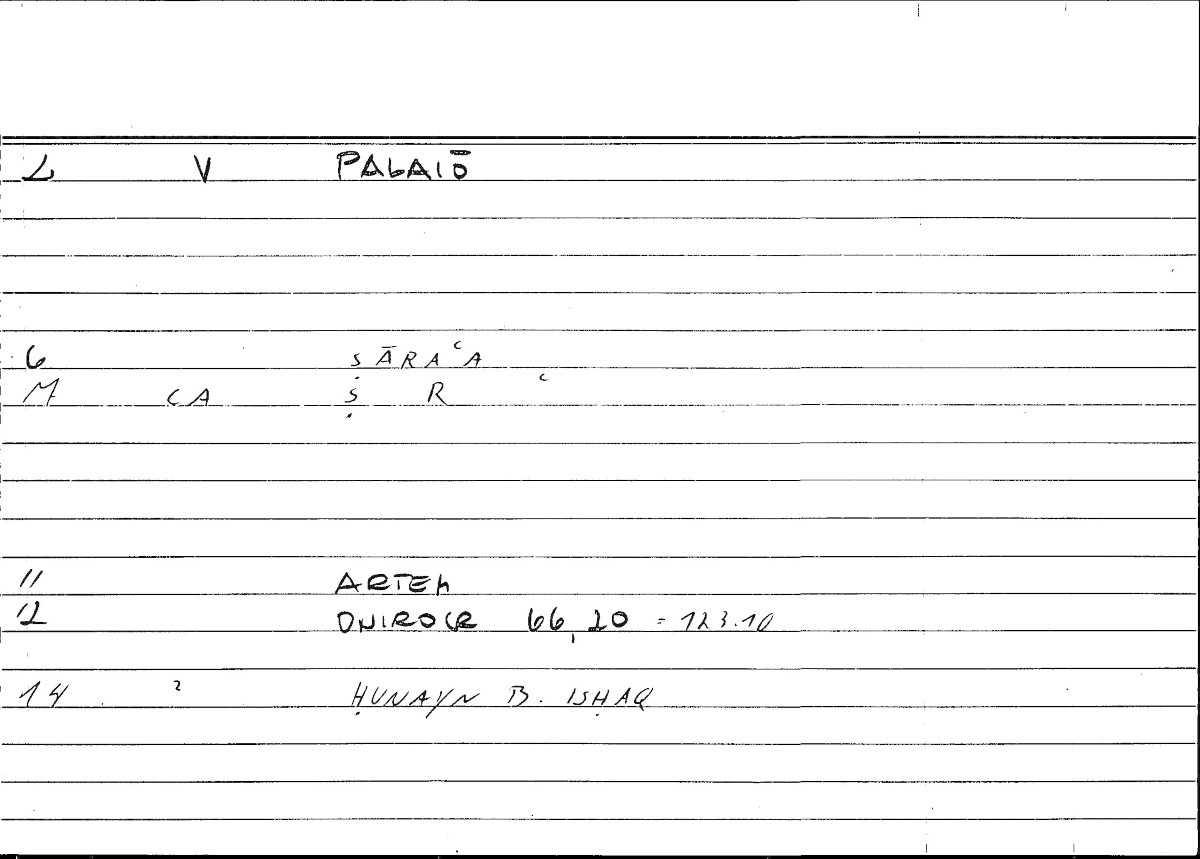 2 V PALAIŌ
6 ṢĀRAʿA
7 CA Ṣ R ʿ
11 ARTEM
12 ONIROCR 66,20 = 123.10
14 2 ḤUNAYN B. ISḤAQ